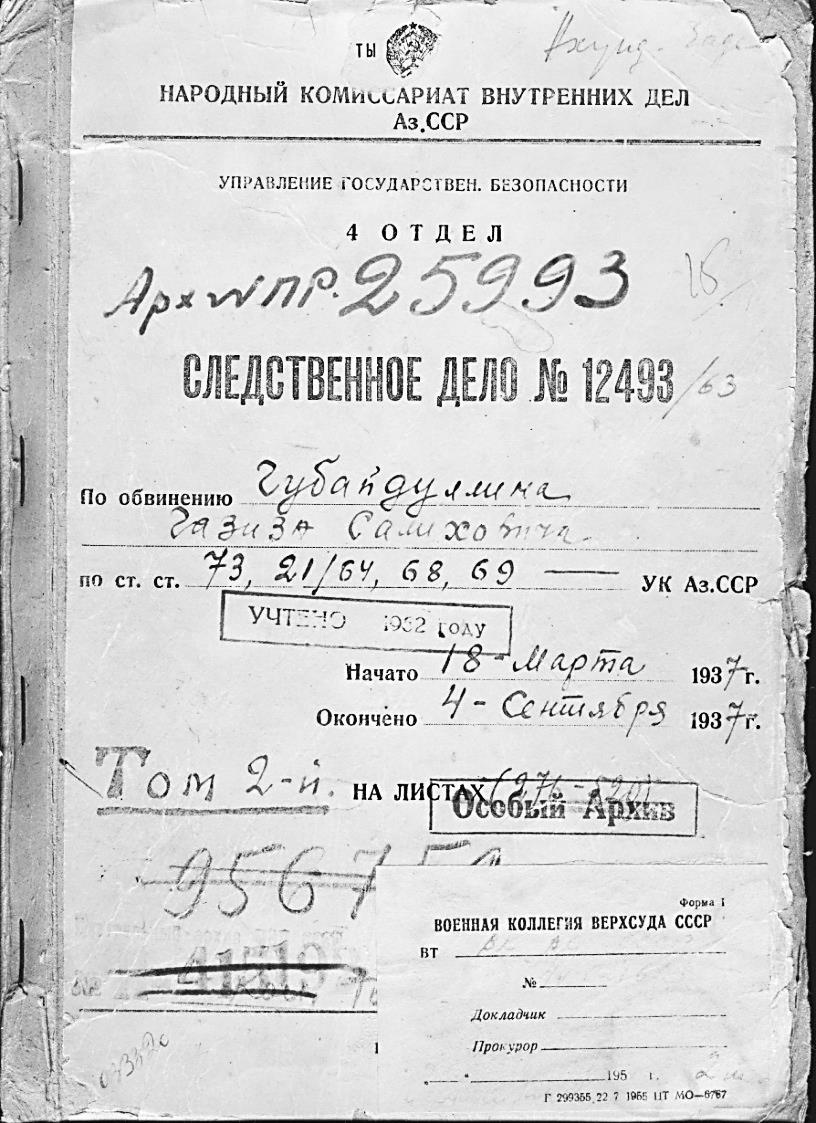 ТЫ
НАРОДНЫЙ КОМИССАРИАТ ВНУТРЕННИХ ДЕЛ
Аз.ССР
УПРАВЛЕНИЕ ГОСУДАРСТВЕН. БЕЗОПАСНОСТИ
4 ОТДЕЛ
Арх № ПР. 25993
СЛЕДСТВЕННОЕ ДЕЛО № 12493/63
По обвинению Губайдуллина
Газиза Салиховича
по ст. ст. 73, 21/64, 68, 69 — УК Аз.ССР
УЧТЕНО 1952 году
Начато 18 - Марта 1937 г.
Окончено 4 - Сентября 1937 г.
Том 2-й. НА ЛИСТАХ (276-520)
Особый Архив
95675
41519
Форма 1
ВОЕННАЯ КОЛЛЕГИЯ ВЕРХСУДА СССР
ВТ
№
Докладчик
Прокурор
„ “ 195 г.
Г 299355 22 7 1955 ЦТ МО—6767